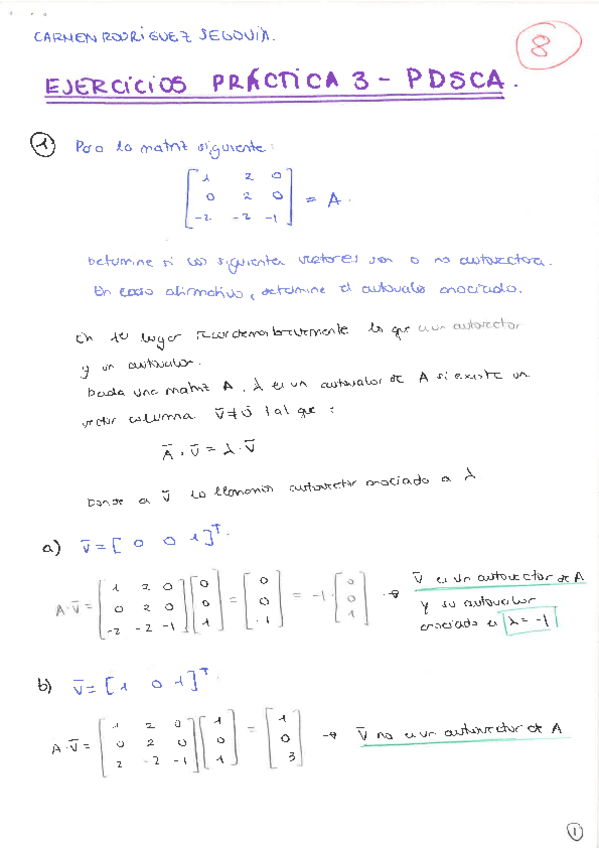 CARMEN RODRÍGUEZ SEGOVIA.
8
EJERCÍCIOS PRÁCTICA 3 - PDSCA.
1 Para la matriz siguiente:
[ 1 2 0
0 2 0 = A.
-2 -2 -1 ]
Determine si los siguientes vectores son o no autovectores.
En caso afirmativo, determine el autovalor asociado.
En 1er lugar recordemos brevemente lo que es un autovector
y un autovalor.
Dada una matriz A, λ es un autovalor de A si existe un
vector columna v̄ ≠ 0̄ tal que:
Ā · v̄ = λ · v̄
Donde a v̄ lo llamamos autovector asociado a λ
a) v̄ = [ 0 0 1 ]ᵀ.
A·v̄ = [ 1 2 0 ; 0 2 0 ; -2 -2 -1 ] [ 0 ; 0 ; 1 ] = [ 0 ; 0 ; -1 ] = -1 · [ 0 ; 0 ; 1 ] → v̄ es un autovector de A
y su autovalor
asociado es λ = -1
b) v̄ = [ 1 0 1 ]ᵀ
A·v̄ = [ 1 2 0 ; 0 2 0 ; 2 -2 -1 ] [ 1 ; 0 ; 1 ] = [ 1 ; 0 ; 3 ] → v̄ no es un autovector de A
1